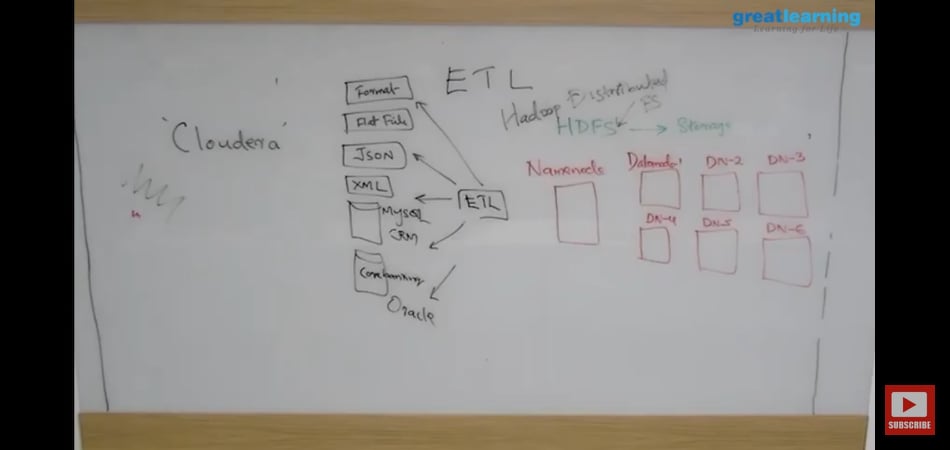 greatlearning
Learning for Life
ETL
Format
Flat File
JSON
XML
MySQL
CRM
Corebanking
Oracle
ETL
'Cloudera'
Hadoop Distributed
FS
HDFS
Storage
Namenode
Datanode1
DN-2
DN-3
DN-4
DN-5
DN-6
SUBSCRIBE